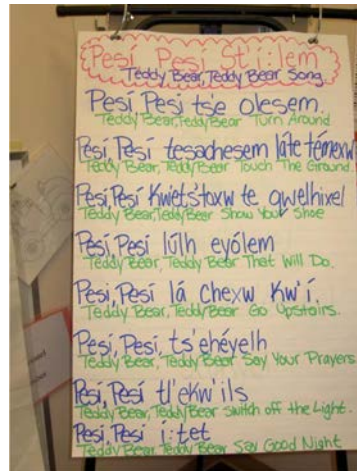 Pesí Pesí St'í:lem
Teddy Bear, Teddy Bear Song
Pesí, Pesí ts'e olesem.
Teddy Bear, Teddy Bear Turn Around
Pesí, Pesí tesachesem láte témexw
Teddy Bear, Teddy Bear Touch The Ground.
Pesí, Pesí Kwiets'toxw te qwelhixel
Teddy Bear, Teddy Bear Show Your Shoe
Pesí, Pesí lúlh eyólem
Teddy Bear, Teddy Bear That Will Do.
Pesi, Pesí lá chexw kw'í.
Teddy Bear, Teddy Bear Go Upstairs.
Pesí, Pesí, ts'ehéyelh
Teddy Bear, Teddy Bear Say Your Prayers
Pesí, Pesí tl'ekw'ils
Teddy Bear, Teddy Bear Switch off the Light.
Pesí, Pesí í:tet
Teddy Bear, Teddy Bear Say Good Night